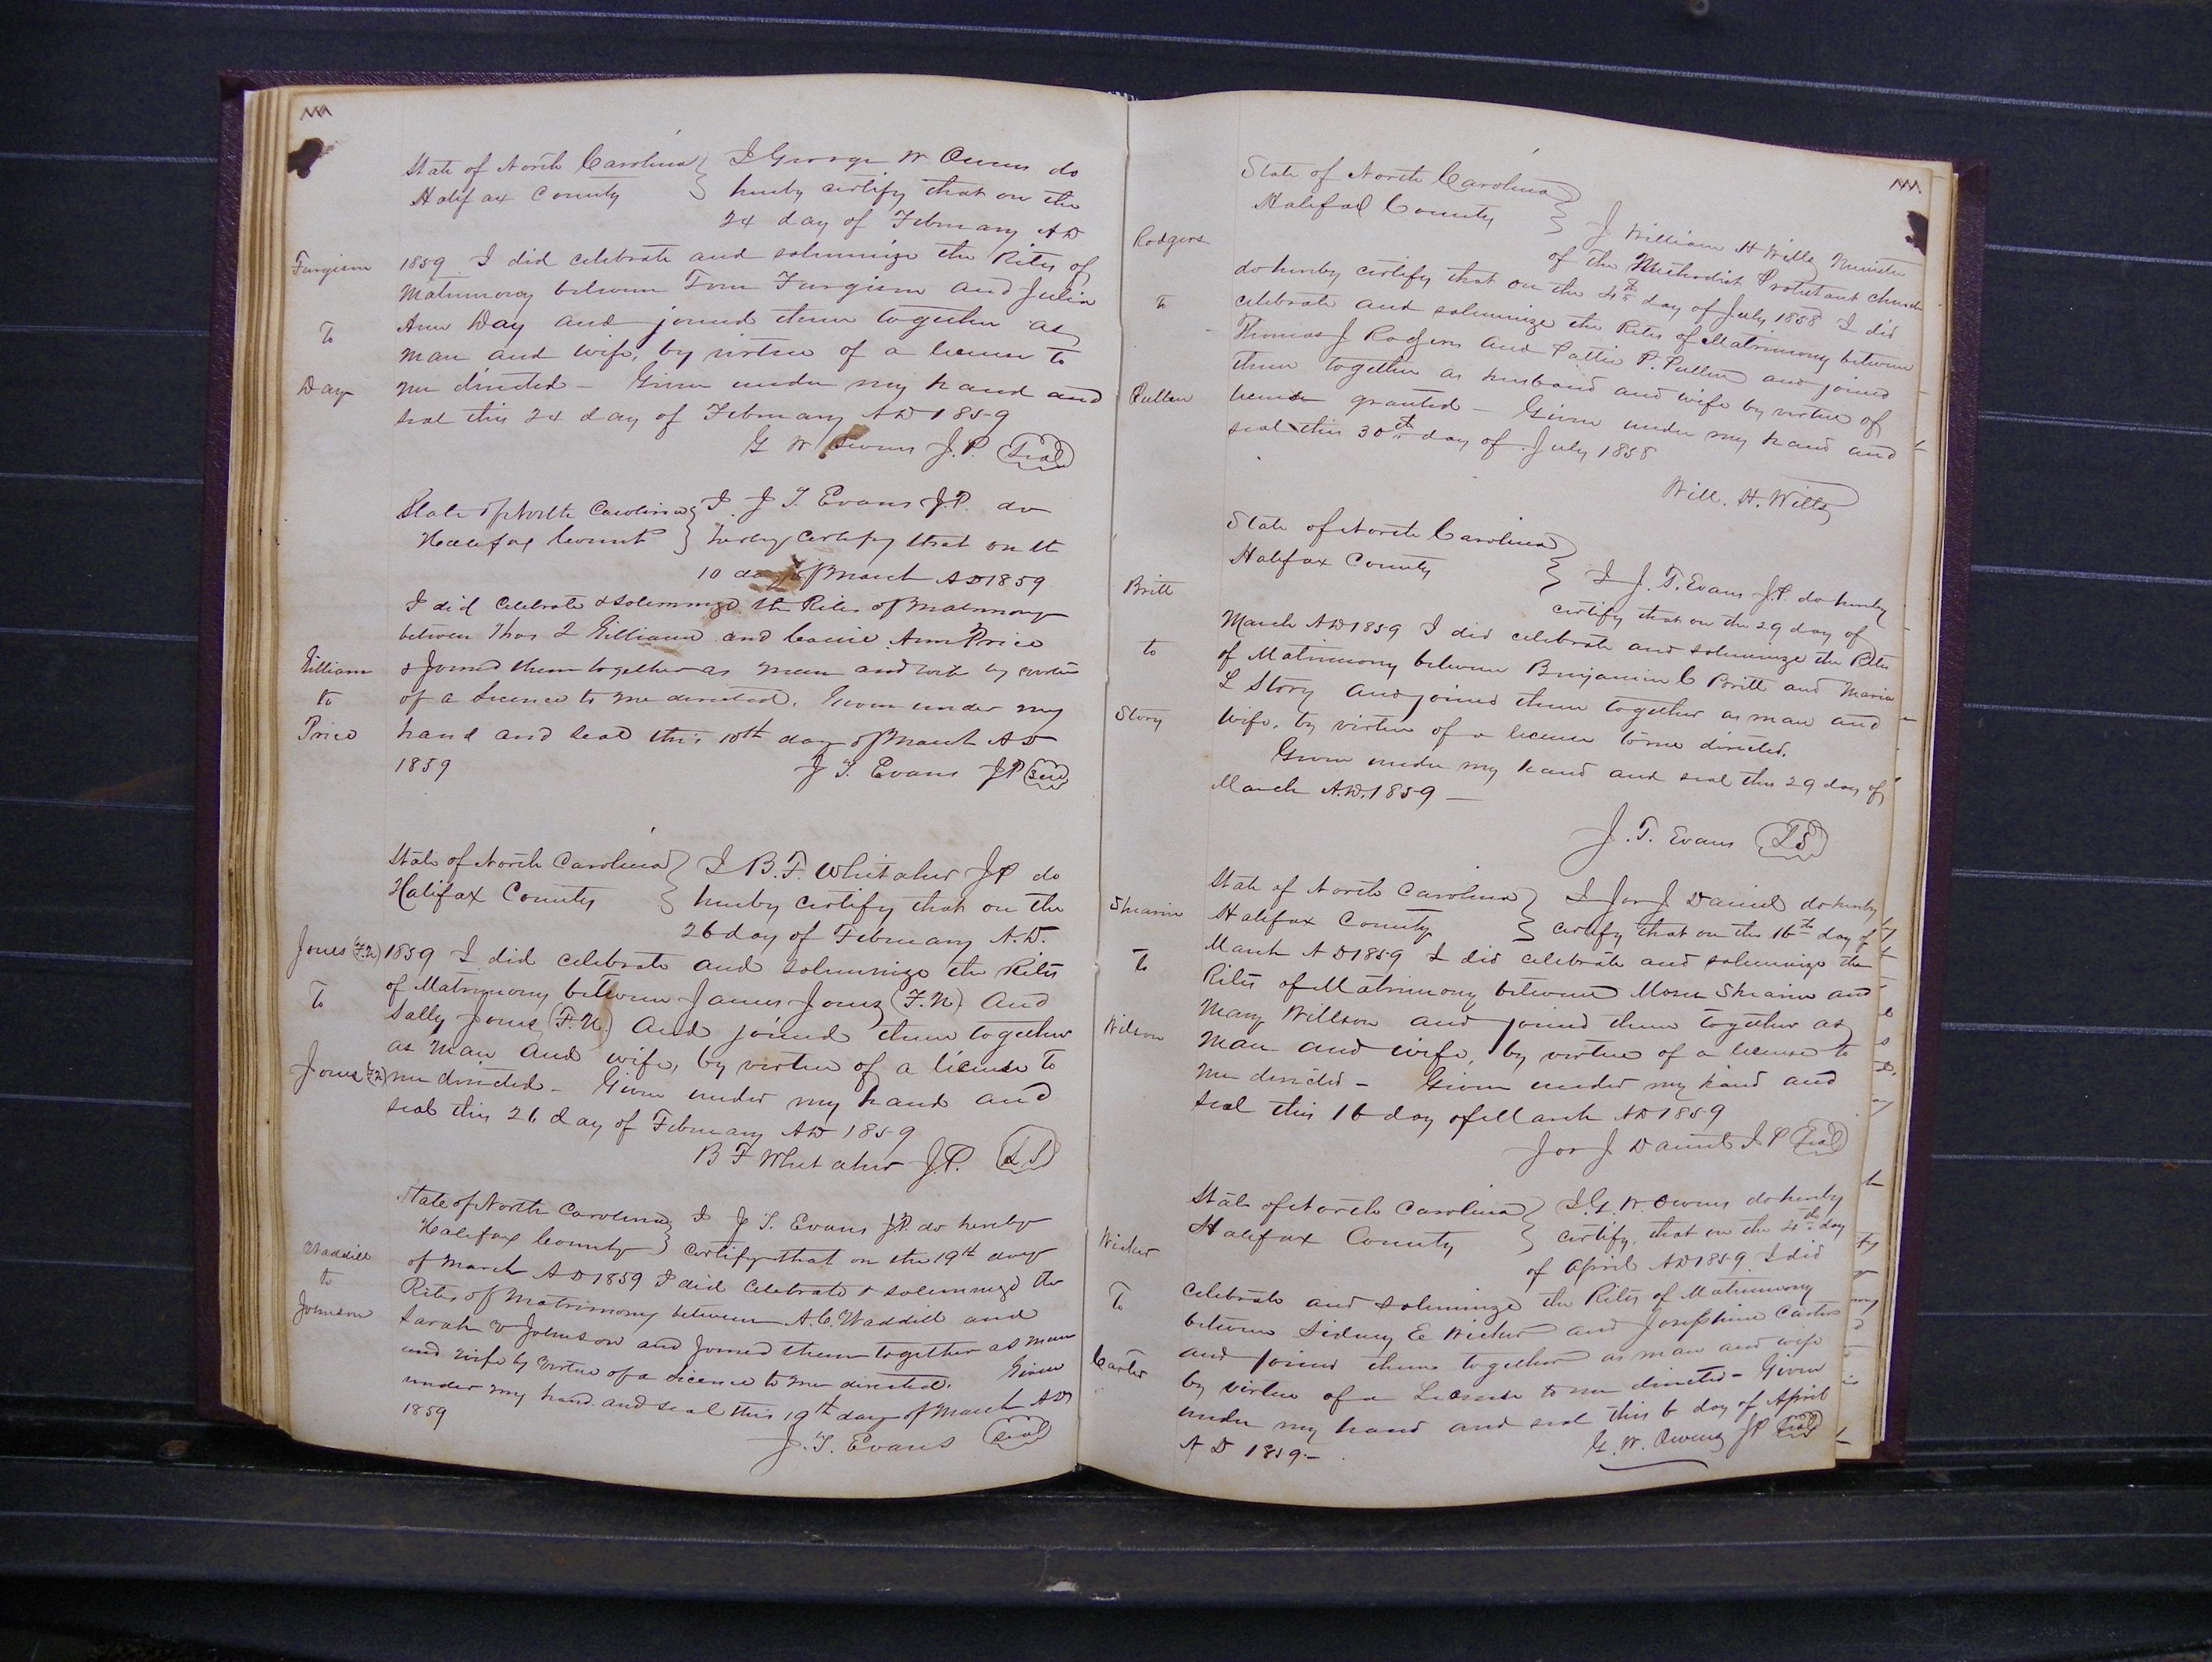 State of North Carolina } I George W Owens do
Halifax County } hereby certify that on the
24 day of February AD
Furgison
1859 I did celebrate and solemnize the Rites of
Matrimony between Tom Furgison and Julia
To
Ann Day and joined them together as
man and wife, by virtue of a license to
Day
me directed - Given under my hand and
seal this 24 day of February AD 1859
G W Owens J.P. (Seal)
State of North Carolina } I J T. Evans J.P. do
Halifax Count } hereby certify that on th
10 day of March AD 1859
I did Celebrate & Solemnized the Rites of Matrimony
between Thos L Gilliam and Ann Price
Gilliam
& Joined them together as man and wife by virtue
to
of a Licence to me directed. Given under my
Price
hand and seal this 10th day of March AD
1859
J T. Evans JP (Seal)
State of North Carolina } I B. F. Whitaker JP do
Halifax County } hereby certify that on the
26 day of February A.D.
Jones (F.N)
1859 I did celebrate and solemnize the Rites
of Matrimony between James Jones (F.N.) and
To
Sally Jones (F.N.) and joined them together
as man and wife, by virtue of a license to
Jones (F.N)
me directed - Given under my hand and
seal this 26 day of February AD 1859
B F Whitaker J.P. (L S)
State of North Carolina } I J T. Evans J.P. do hereby
Halifax County } certify that on the 19th day
Waddill
of March AD 1859 I did Celebrate & solemnized the
to
Rites of Matrimony between A. C. Waddill and
Johnson
Sarah Johnson and Joined them together as man
and wife by virtue of a Licence to me directed. Given
under my hand and seal this 19th day of March AD
1859
J. T. Evans (Seal)
State of North Carolina }
Halifax County } I William H Wills Minister
Rodgers
of the Methodist Protestant Church
do hereby certify that on the 4th day of July 1858 I did
To
celebrate and solemnize the Rites of Matrimony between
Thomas J Rodgers and Pattie P. Pullen and joined
them together as husband and wife by virtue of
Pullen
license granted - Given under my hand and
seal this 30th day of July 1858
Will. H. Wills
State of North Carolina }
Halifax County } I J. T. Evans J.P. do hereby
Britt
certify that on the 29 day of
March AD 1859 I did celebrate and solemnize the Rites
to
of Matrimony between Benjamin C Britt and Maria
L Story and joined them together as man and
Story
wife, by virtue of a license to me directed.
Given under my hand and seal this 29 day of
March A.D. 1859 -
J. T. Evans (L S)
State of North Carolina } I Jos J Daniel do hereby
Shearin
Halifax County } certify that on the 16th day of
March AD 1859 I did celebrate and solemnize the
To
Rites of Matrimony between Moses Shearin and
Mary Willson and joined them together as
Wilson
man and wife, by virtue of a license to
me directed - Given under my hand and
seal this 16 day of March AD 1859
Jos J Daniel J P (Seal)
State of North Carolina } I G. W. Owens do hereby
Halifax County } certify, that on the 4th day
of April AD 1859 I did
celebrate and solemnize the Rites of Matrimony
To
between Sidney E and Josephine Carter
and joined them together as man and wife
Carter
by virtue of a License to me directed - Given
under my hand and seal this 6 day of April
A D 1859. -
G. W. Owens JP (Seal)